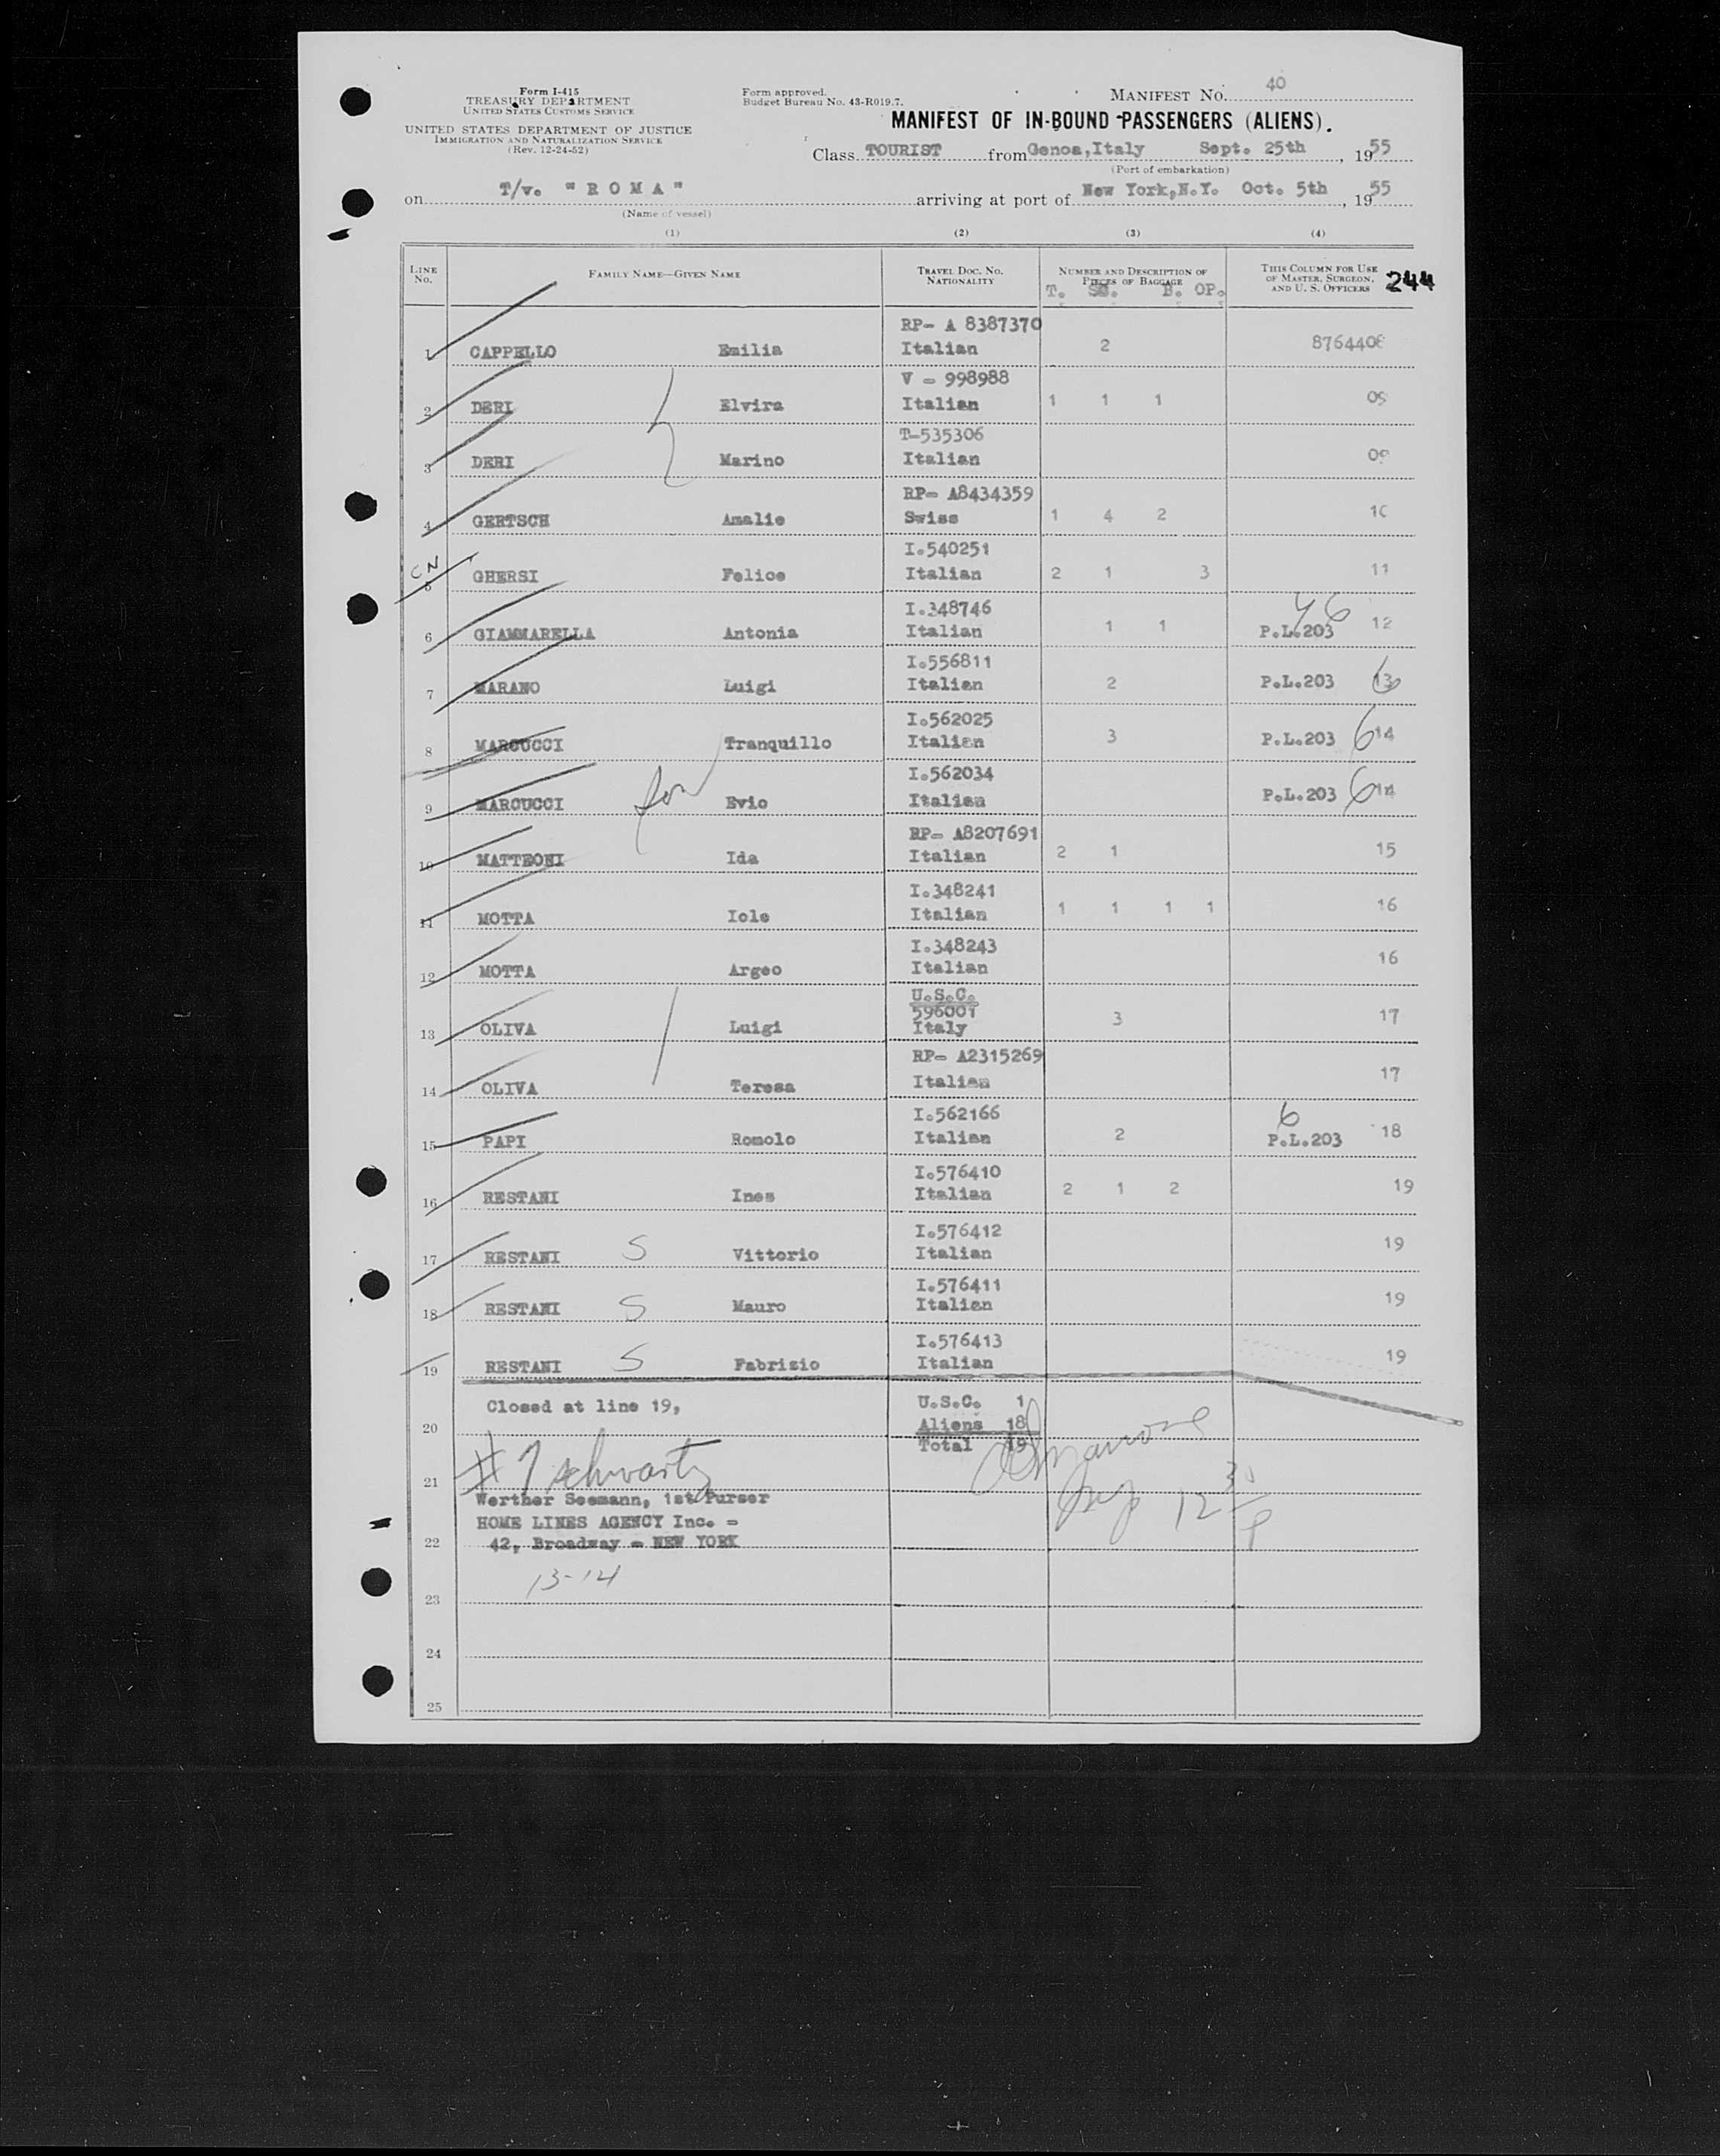 Form I-415
TREASURY DEPARTMENT
UNITED STATES CUSTOMS SERVICE
UNITED STATES DEPARTMENT OF JUSTICE
IMMIGRATION AND NATURALIZATION SERVICE
(Rev. 12-24-52)
Form approved.
Budget Bureau No. 43-R019.7.
MANIFEST NO. 40
MANIFEST OF IN-BOUND PASSENGERS (ALIENS).
Class TOURIST from Genoa, Italy Sept. 25th, 1955
(Port of embarkation)
on T/v. "R O M A" arriving at port of New York, N.Y. Oct. 5th, 1955
(Name of vessel)
(1) (2) (3) (4)
LINE NO. FAMILY NAME—GIVEN NAME TRAVEL DOC. NO. NATIONALITY NUMBER AND DESCRIPTION OF PIECES OF BAGGAGE THIS COLUMN FOR USE OF MASTER, SURGEON, AND U. S. OFFICERS 244
T. SC. B. OP.
RP- A 8387370
1 CAPPELLO Emilia Italian 2 8764408
V - 998988
2 DERI Elvira Italian 1 1 1 09
T-535306
3 DERI Marino Italian 09
RP- A8434359
4 GERTSCH Amalie Swiss 1 4 2 10
I.540251
CN 5 GHERSI Felice Italian 2 1 3 11
I.348746
6 GIAMMARELLA Antonia Italian 1 1 P.L.203 12
I.556811
7 MARANO Luigi Italian 2 P.L.203 13
I.562025
8 MARCUCCI Tranquillo Italian 3 P.L.203 6 14
I.562034
9 MARCUCCI son Evio Italian P.L.203 6 14
RP- A8207691
10 MATTEONI Ida Italian 2 1 15
I.348241
11 MOTTA Iole Italian 1 1 1 1 16
I.348243
12 MOTTA Argeo Italian 16
U.S.C.
596001
13 OLIVA Luigi Italy 3 17
RP- A2315269
14 OLIVA Teresa Italian 17
I.562166 6
15 PAPI Romolo Italian 2 P.L.203 18
I.576410
16 RESTANI Ines Italian 2 1 2 19
I.576412
17 RESTANI S Vittorio Italian 19
I.576411
18 RESTANI S Mauro Italian 19
I.576413
19 RESTANI S Fabrizio Italian 19
Closed at line 19, U.S.C. 1
20 Aliens 18
Total 19
21 # 7 Schwartz
Werther Seemann, 1st Purser
HOME LINES AGENCY Inc. -
22 42, Broadway - NEW YORK
13-14
23
24
25